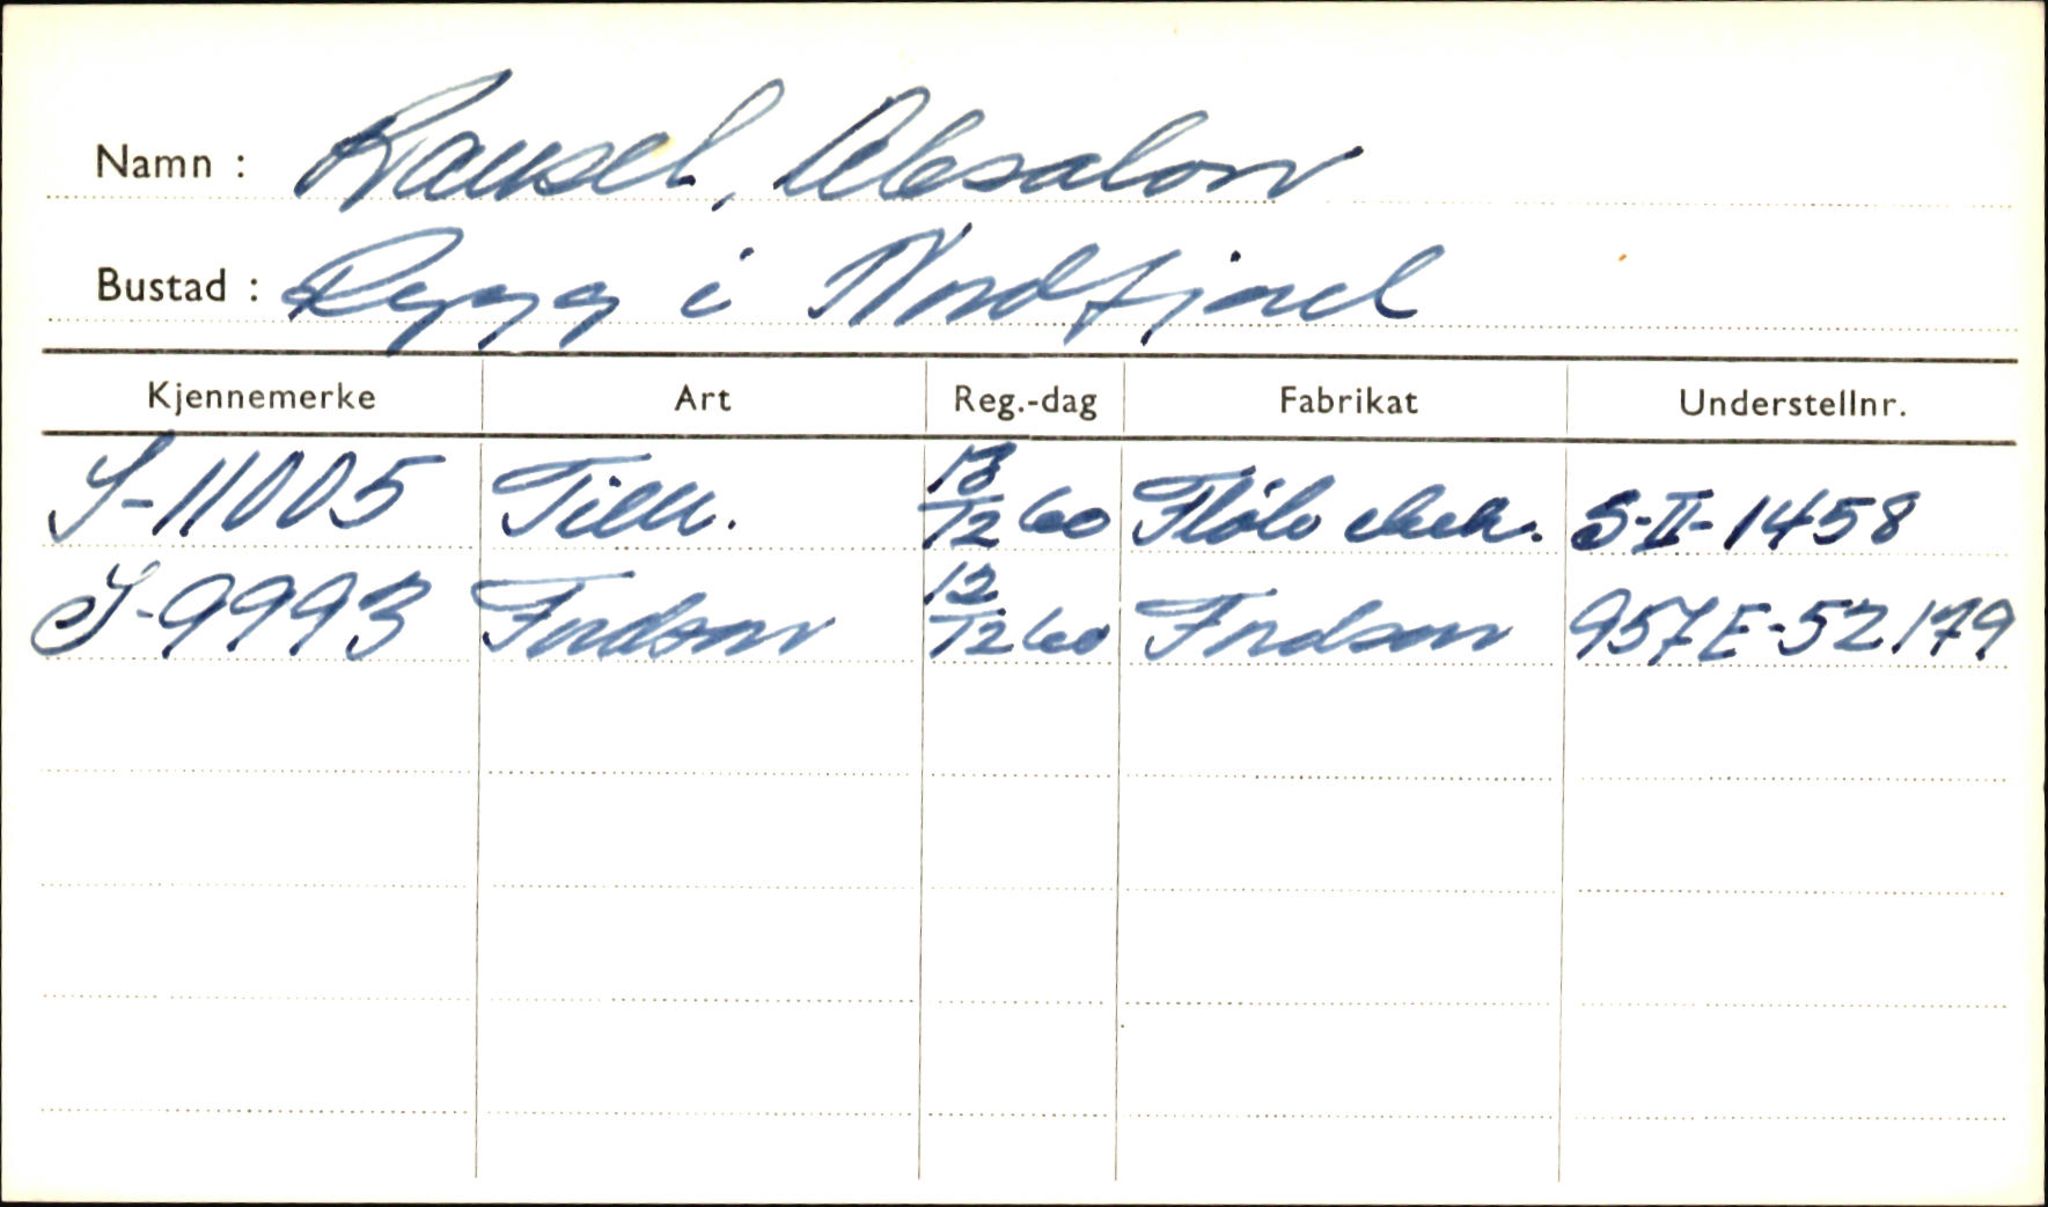 Namn : Rausel, Absalon
Bustad : Rygg i Nordfjord
Kjennemerke Art Reg.-dag Fabrikat Understellnr.
S-11005 Tilh. 13/12 60 Flølo S-II-1458
S-9993 Fordson 12/12 60 Fordson 957E-52179